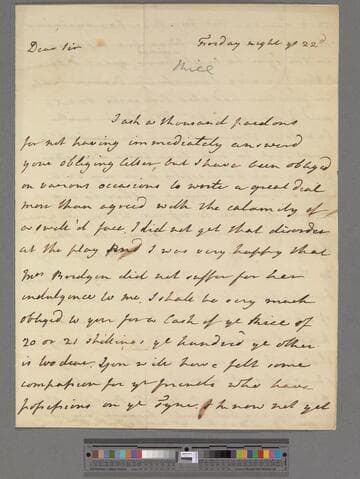 Dear Sir
Friday night ye 22d
Rice
I ask a thousand pardons
for not having immediately answerd
your obliging letter, but I have been obliged
on various occasions to write a great deal
more than agreed with the calamity of
a swell'd face, I did not get that disorder
at the play and I was very happy that
Mrs did not suffer for her
indulgence to me. I shall be very much
obliged to you for a Cask of ye Rice of
20 or 21 shillings ye hundred ye other
is too dear. you will have felt some
compassion for yr friends who have
possessions on ye Tyne, I know not yet